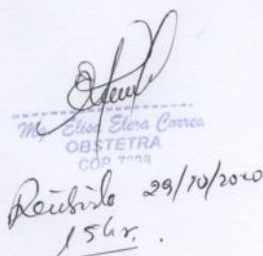 Mg. Elisa Elera Correa
OBSTETRA
COP
Recibido 29/10/2020
15hr.